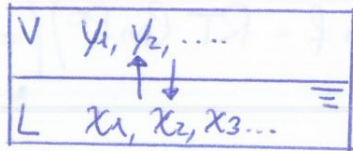 V y₁, y₂, ....
L x₁, x₂, x₃...